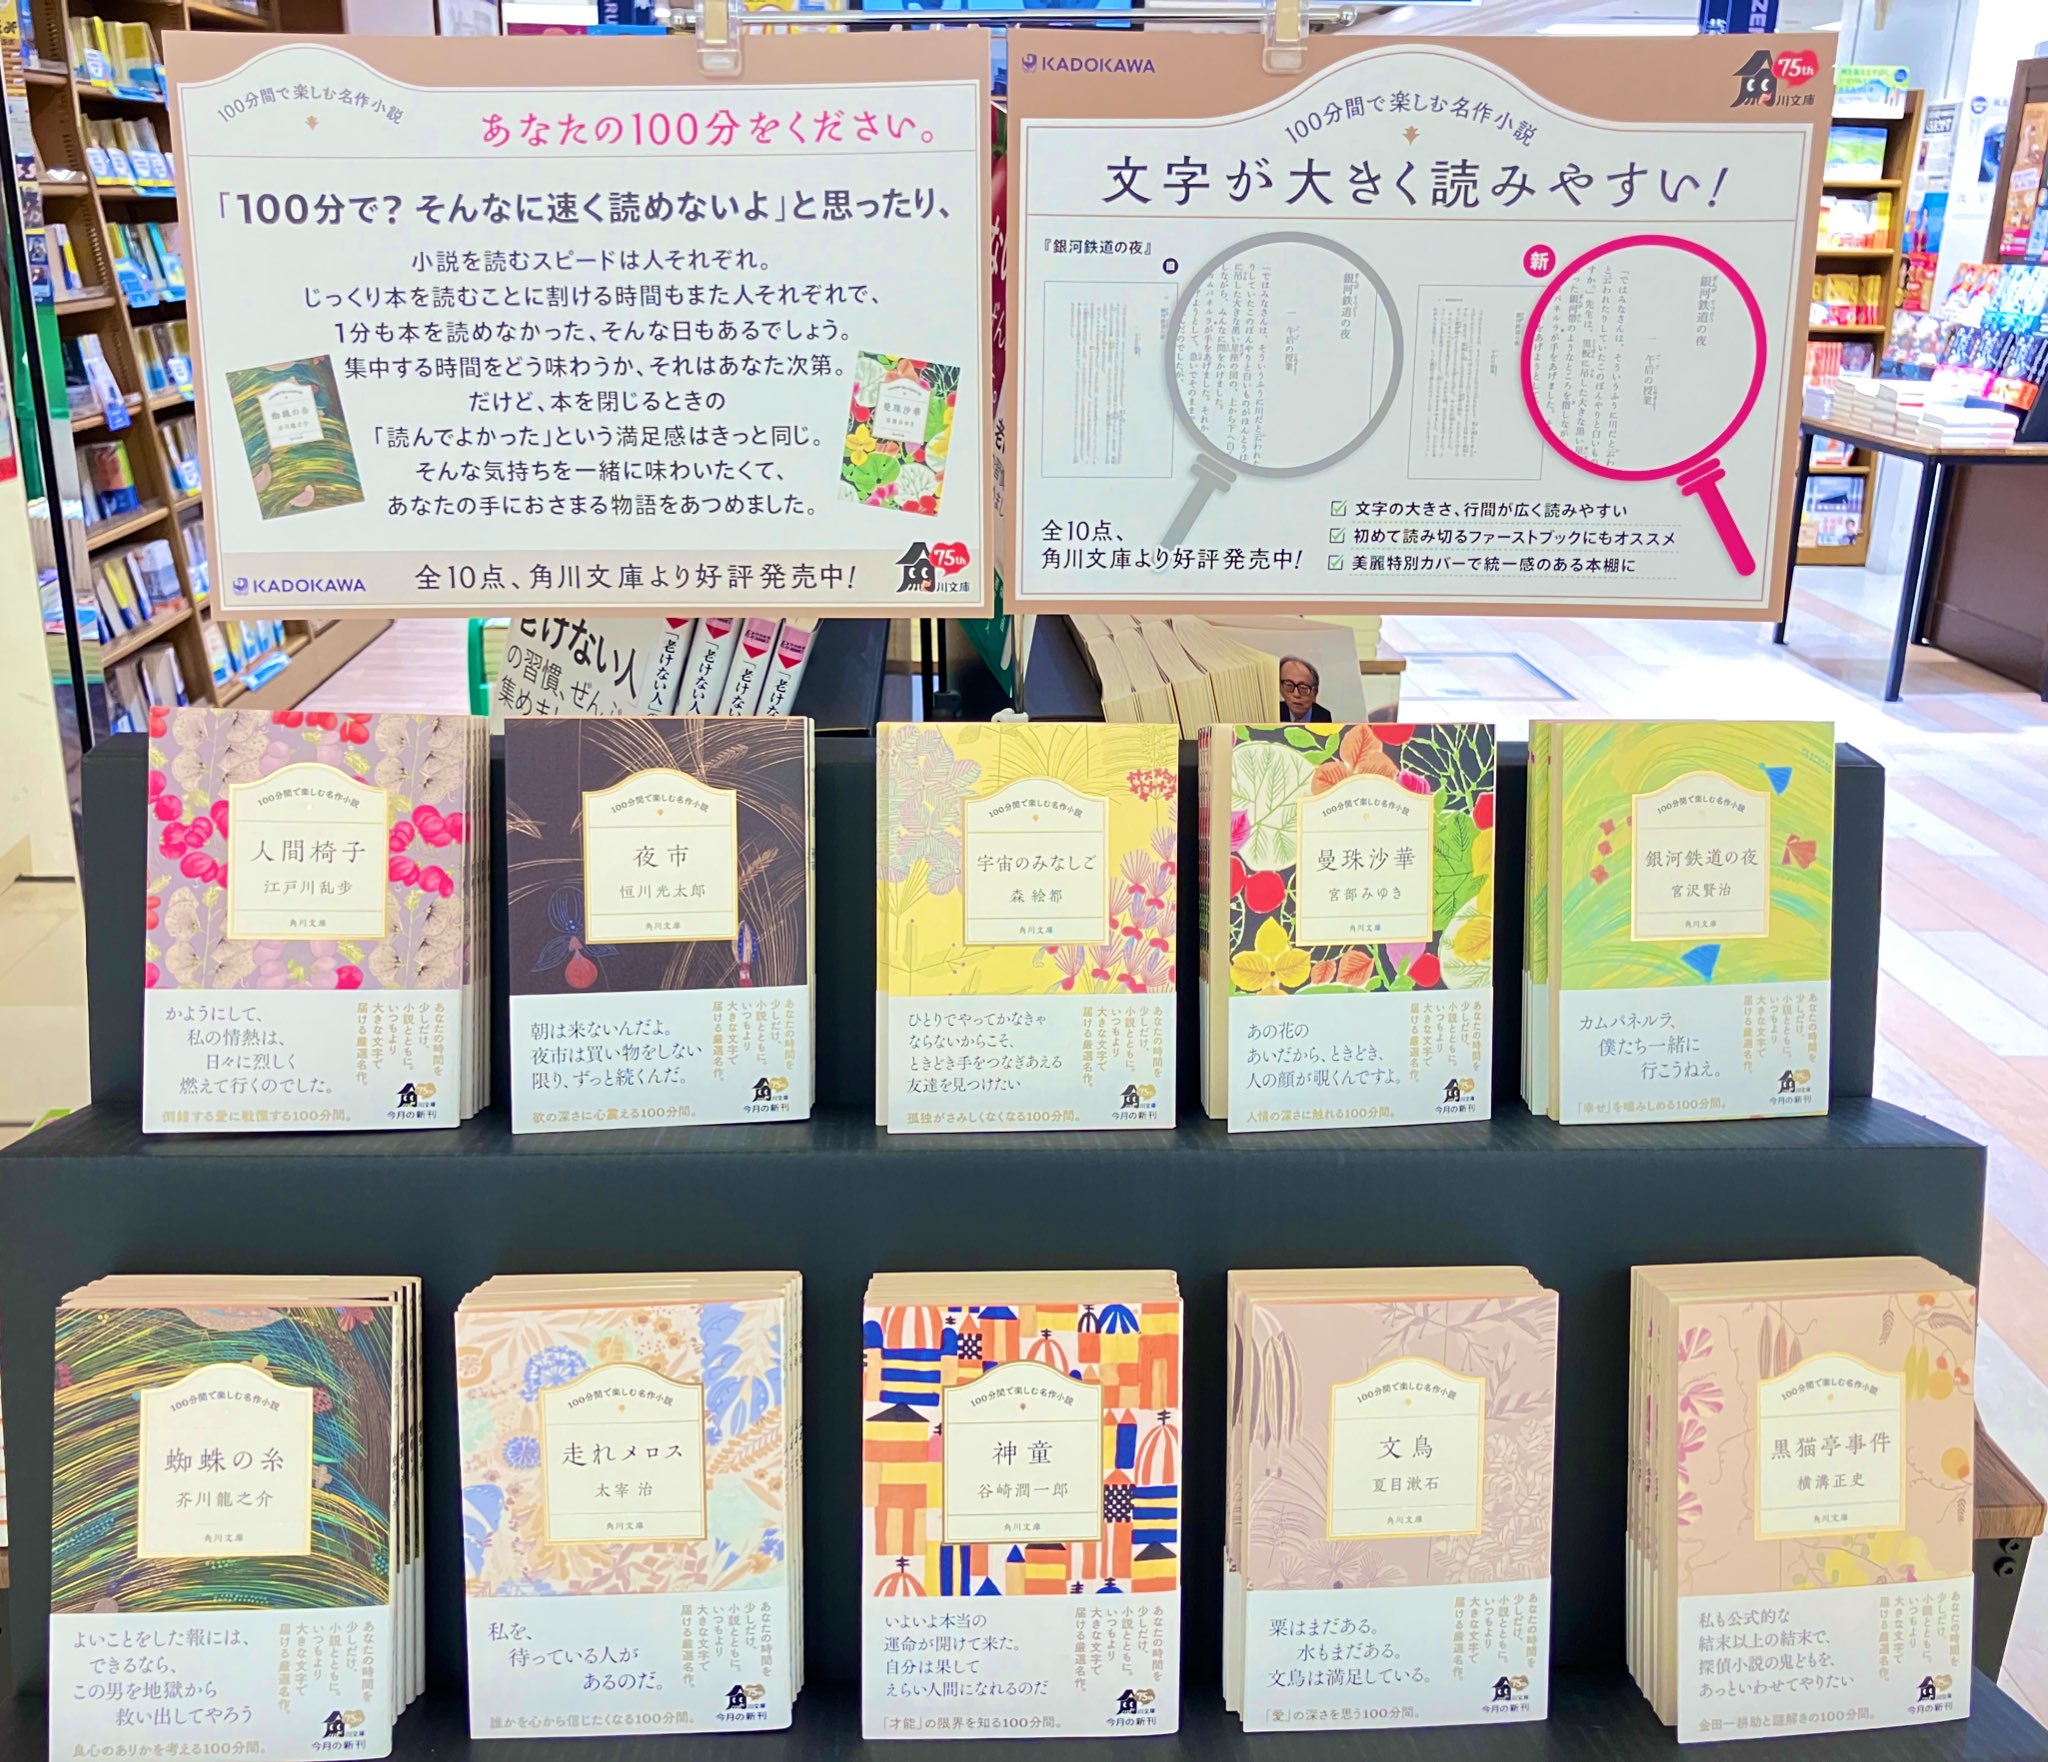 100分間で楽しむ名作小説
あなたの100分をください。
「100分で？そんなに速く読めないよ」と思ったり、
小説を読むスピードは人それぞれ。
じっくり本を読むことに割ける時間もまた人それぞれで、
1分も本を読めなかった、そんな日もあるでしょう。
集中する時間をどう味わうか、それはあなた次第。
だけど、本を閉じるときの
「読んでよかった」という満足感はきっと同じ。
そんな気持ちを一緒に味わいたくて、
あなたの手におさまる物語をあつめました。
蜘蛛の糸
芥川龍之介
曼珠沙華
宮部みゆき
KADOKAWA
全10点、角川文庫より好評発売中！
75th
角川文庫
KADOKAWA
75th
角川文庫
100分間で楽しむ名作小説
文字が大きく読みやすい！
『銀河鉄道の夜』
旧
銀河鉄道の夜
一 午后の授業
新
銀河鉄道の夜
一 午后の授業
全10点、
角川文庫より好評発売中！
文字の大きさ、行間が広く読みやすい
初めて読み切るファーストブックにもオススメ
美麗特別カバーで統一感のある本棚に
老けない人
の習慣、ぜんぶ
集めま
「老けない人」
「老けない人」
「老けない人」
「老けない人」
100分間で楽しむ名作小説
人間椅子
江戸川乱歩
角川文庫
かようにして、
私の情熱は、
日々に烈しく
燃えて行くのでした。
倒錯する愛に戦慄する100分間。
あなたの時間を
少しだけ、
小説とともに。
いつもより
大きな文字で
届ける厳選名作。
75th
角川文庫
今月の新刊
100分間で楽しむ名作小説
夜市
恒川光太郎
角川文庫
朝は来ないんだよ。
夜市は買い物をしない
限り、ずっと続くんだ。
欲の深さに心震える100分間。
あなたの時間を
少しだけ、
小説とともに。
いつもより
大きな文字で
届ける厳選名作。
75th
角川文庫
今月の新刊
100分間で楽しむ名作小説
宇宙のみなしご
森 絵都
角川文庫
ひとりでやってかなきゃ
ならないからこそ、
ときどき手をつなぎあえる
友達を見つけたい
孤独がさみしくなくなる100分間。
あなたの時間を
少しだけ、
小説とともに。
いつもより
大きな文字で
届ける厳選名作。
75th
角川文庫
今月の新刊
100分間で楽しむ名作小説
曼珠沙華
宮部みゆき
角川文庫
あの花の
あいだから、ときどき、
人の顔が覗くんですよ。
人情の深さに触れる100分間。
あなたの時間を
少しだけ、
小説とともに。
いつもより
大きな文字で
届ける厳選名作。
75th
角川文庫
今月の新刊
100分間で楽しむ名作小説
銀河鉄道の夜
宮沢賢治
角川文庫
カムパネルラ、
僕たち一緒に
行こうねえ。
「幸せ」を噛みしめる100分間。
あなたの時間を
少しだけ、
小説とともに。
いつもより
大きな文字で
届ける厳選名作。
75th
角川文庫
今月の新刊
100分間で楽しむ名作小説
蜘蛛の糸
芥川龍之介
角川文庫
よいことをした報には、
できるなら、
この男を地獄から
救い出してやろう
良心のありかを考える100分間。
あなたの時間を
少しだけ、
小説とともに。
いつもより
大きな文字で
届ける厳選名作。
75th
角川文庫
今月の新刊
100分間で楽しむ名作小説
走れメロス
太宰 治
角川文庫
私を、
待っている人が
あるのだ。
誰かを心から信じたくなる100分間。
あなたの時間を
少しだけ、
小説とともに。
いつもより
大きな文字で
届ける厳選名作。
75th
角川文庫
今月の新刊
100分間で楽しむ名作小説
神童
谷崎潤一郎
角川文庫
いよいよ本当の
運命が開けて来た。
自分は果して
えらい人間になれるのだ
「才能」の限界を知る100分間。
あなたの時間を
少しだけ、
小説とともに。
いつもより
大きな文字で
届ける厳選名作。
75th
角川文庫
今月の新刊
100分間で楽しむ名作小説
文鳥
夏目漱石
角川文庫
粟はまだある。
水もまだある。
文鳥は満足している。
「愛」の深さを思う100分間。
あなたの時間を
少しだけ、
小説とともに。
いつもより
大きな文字で
届ける厳選名作。
75th
角川文庫
今月の新刊
100分間で楽しむ名作小説
黒猫亭事件
横溝正史
角川文庫
私も公式的な
結末以上の結末で、
探偵小説の鬼どもを、
あっといわせてやりたい
金田一耕助と謎解きの100分間。
あなたの時間を
少しだけ、
小説とともに。
いつもより
大きな文字で
届ける厳選名作。
75th
角川文庫
今月の新刊